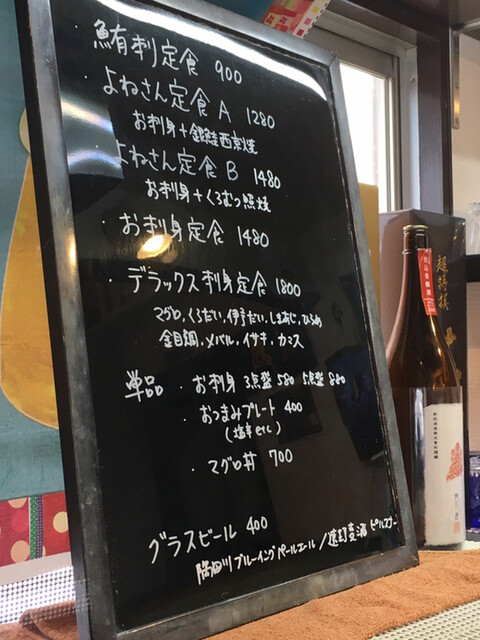 ・鮪刺定食 900
・よねさん定食A 1280
お刺身+銀鮭西京焼
・よねさん定食B 1480
お刺身+くろむつ照焼
・お刺身定食 1480
・デラックス刺身定食 1800
マグロ、くろだい、伊予だい、しまあじ、ひらめ
金目鯛、メバル、イサキ、カマス
単品 ・お刺身 3点盛 580 5点盛 880
・おつまみプレート 400
(塩辛etc)
・マグロ丼 700
グラスビール 400
隅田川ブルーイングペールエール/遠野麦酒ピルスナー
超特撰